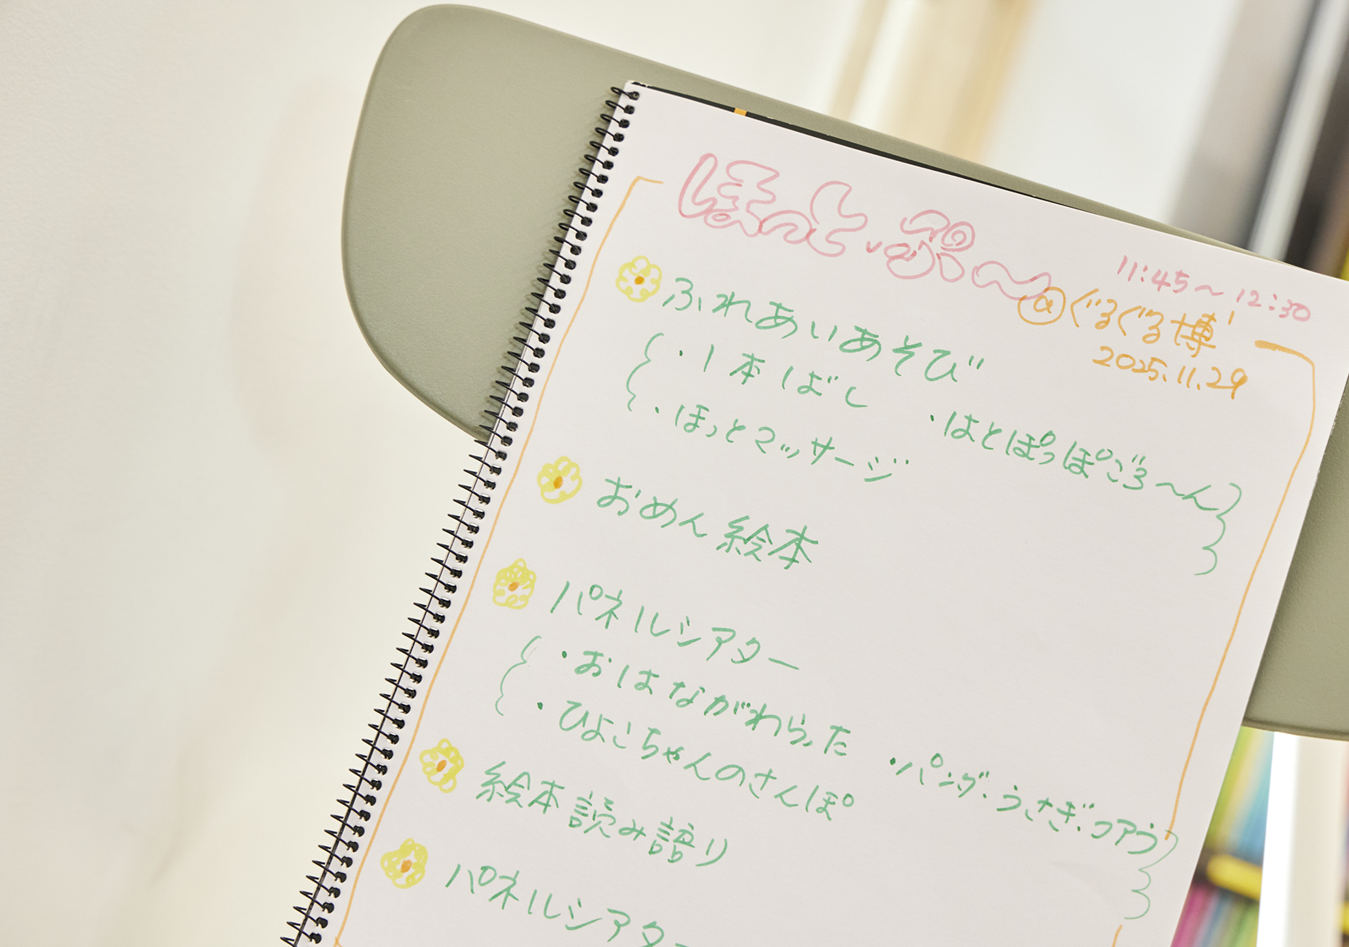 ほっと・ぷ〜
11:45〜12:30
@ぐるぐる博
2025.11.29
ふれあいあそび
・1本ばし ・はとぽっぽごろ〜ん
・ほっとマッサージ
おめん絵本
パネルシアター
・おはながわらった ・パンダ・うさぎ・コアラ
・ひよこちゃんのさんぽ
絵本読み語り
パネルシアター